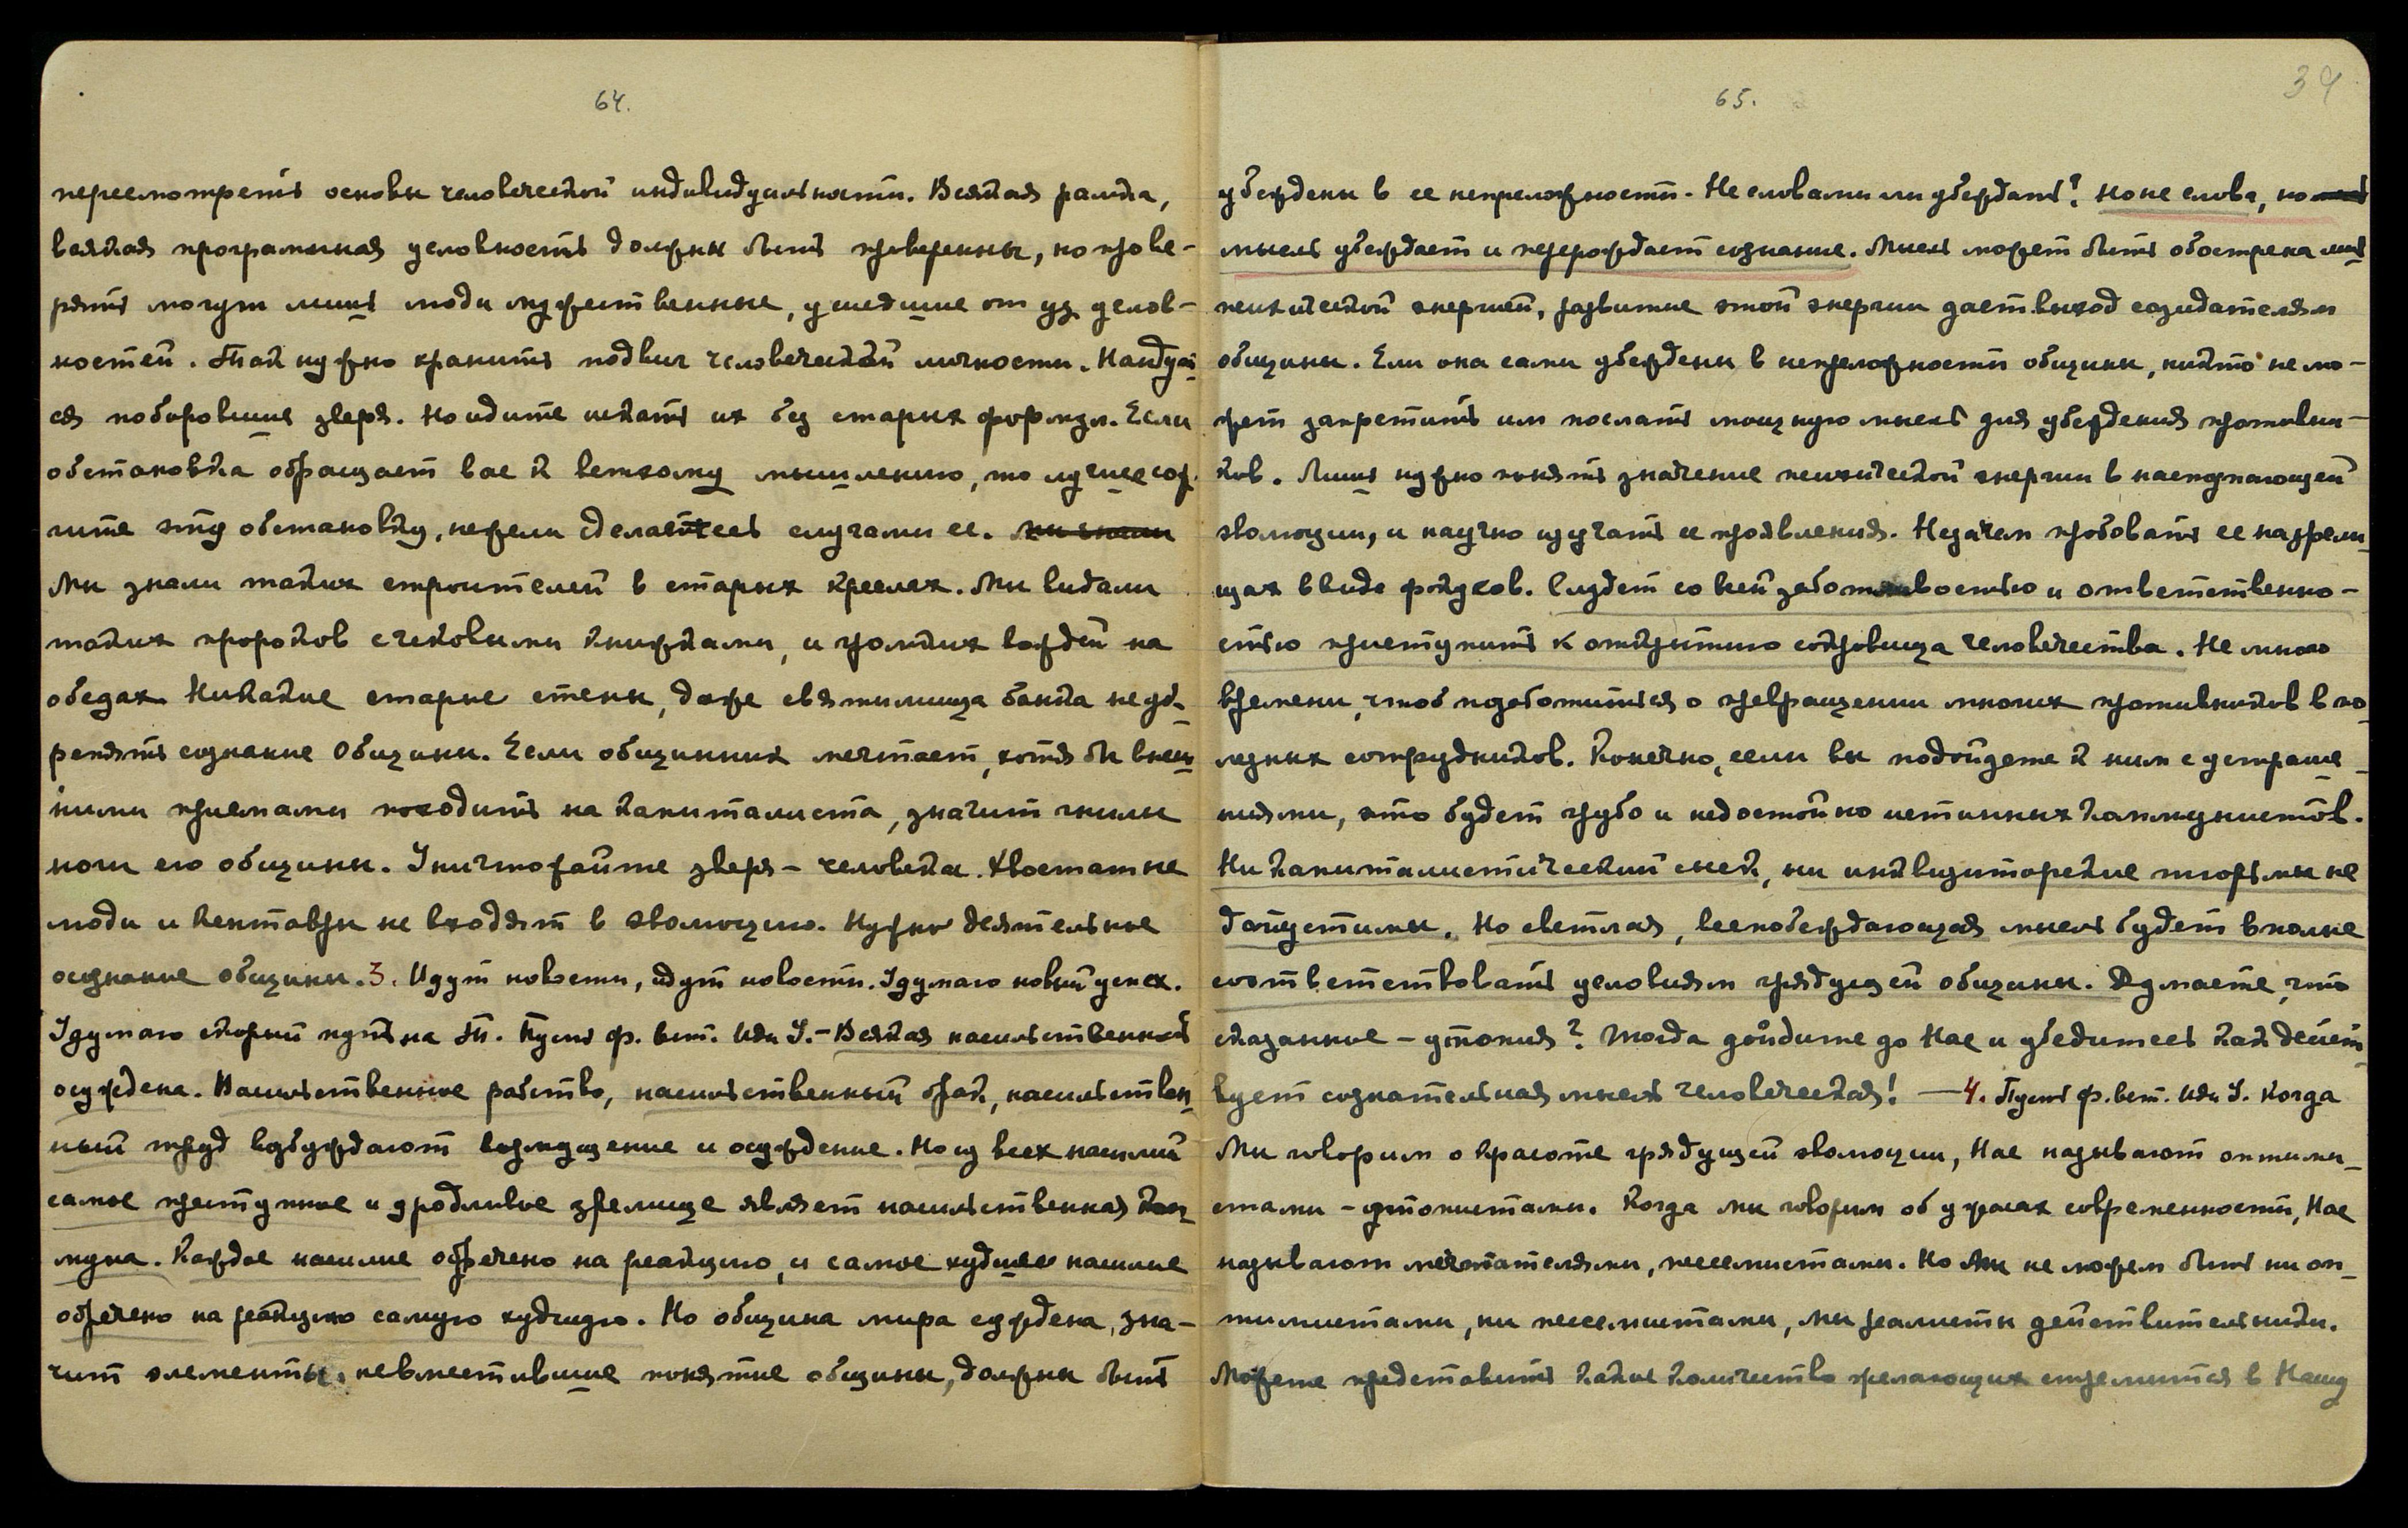 64.
пересмотреть основы человеческой индивидуальности. Всякая рамка,
всякая програмная условность должны быть проверенны, но прове-
рять могут лишь люди мужественные, ушедшие от уз услов-
ностей. Так нужно хранить подвиг человеческой личности. Найдут-
ся поборовшие зверя. Но идите искать их без старых формул. Если
обстановка обращает вас к ветхому мышлению, то лучше сож-
гите эту обстановку, нежели сделаетесь слугами ее. мы знали
Мы знали таких строителей в старых креслах. Мы видали
таких пророков с чековыми книжками, и громких вождей на
обедах. Никакие старые стены, даже святилища банка не ук-
репят сознание Общины. Если общинник мечтает, хотя бы внеш-
ними приемами походить на капиталиста, значит гнилы
ноги его общины. Уничтожайте зверя - человека. Хвостатые
люди и кентавры не входят в эволюцию. Нужно деятельное
осознание общины. 3. Идут новости, идут новости. Удумаю новый успех.
Удумаю скорый путь на Т. Пусть ф. вет. Иди У. - Всякая насильственность
осуждена. Насильственное рабство, насильственный брак, насильствен-
ный труд возбуждают возмущение и осуждение. Но из всех насилий
самое преступное и уродливое зрелище являет насильственная ком-
муна. Каждое насилие обречено на реакцию, и самое худшее насилие
обречено на реакцию самую худшую. Но община мира суждена, зна-
чит элементы, невместившие понятие общины, должны быть
65.
34
убеждены в ее непреложности. Не словами ли убеждать? Но не слова, но
мысль убеждает и перерождает сознание. Мысль может быть обострена лишь
психической энергией, развитие этой энергии дает выход создателям
общины. Если они сами убеждены в непреложности общины, никто не мо-
жет запретить им послать мощную мысль для убеждения противни-
ков. Лишь нужно понять значение психической энергии в наступающей
эволюции, и научно изучать ее проявления. Незачем пробовать ее на зрели-
щах в виде фокусов. Следует со всей заботливостью и ответственно-
стью приступить к открытию сокровища человечества. Не много
времени, чтоб позаботиться о превращении многих противников в по-
лезных сотрудников. Конечно, если вы подойдете к ним с устраше-
ниями, это будет грубо и недостойно истинных коммунистов.
Ни капиталистический снек, ни инквизиторские тюрьмы не
допустимы. Но светлая, всепобеждающая мысль будет вполне
соответствовать условиям грядущей общины. Думаете, что
сказанное - утопия? Тогда дойдите до Нас и убедитесь как дейст-
вует сознательная мысль человеческая! — 4. Пусть ф. вет. Иди У. Когда
Мы говорим о красоте грядущей эволюции, Нас называют оптими-
стами - утопистами. Когда мы говорим об ужасах современности, Нас
называют мечтателями, пессимистами. Но Мы не можем быть ни оп-
тимистами, ни пессимистами, мы реалисты действительники.
Можете представить какое количество желающих стремиться в Нашу